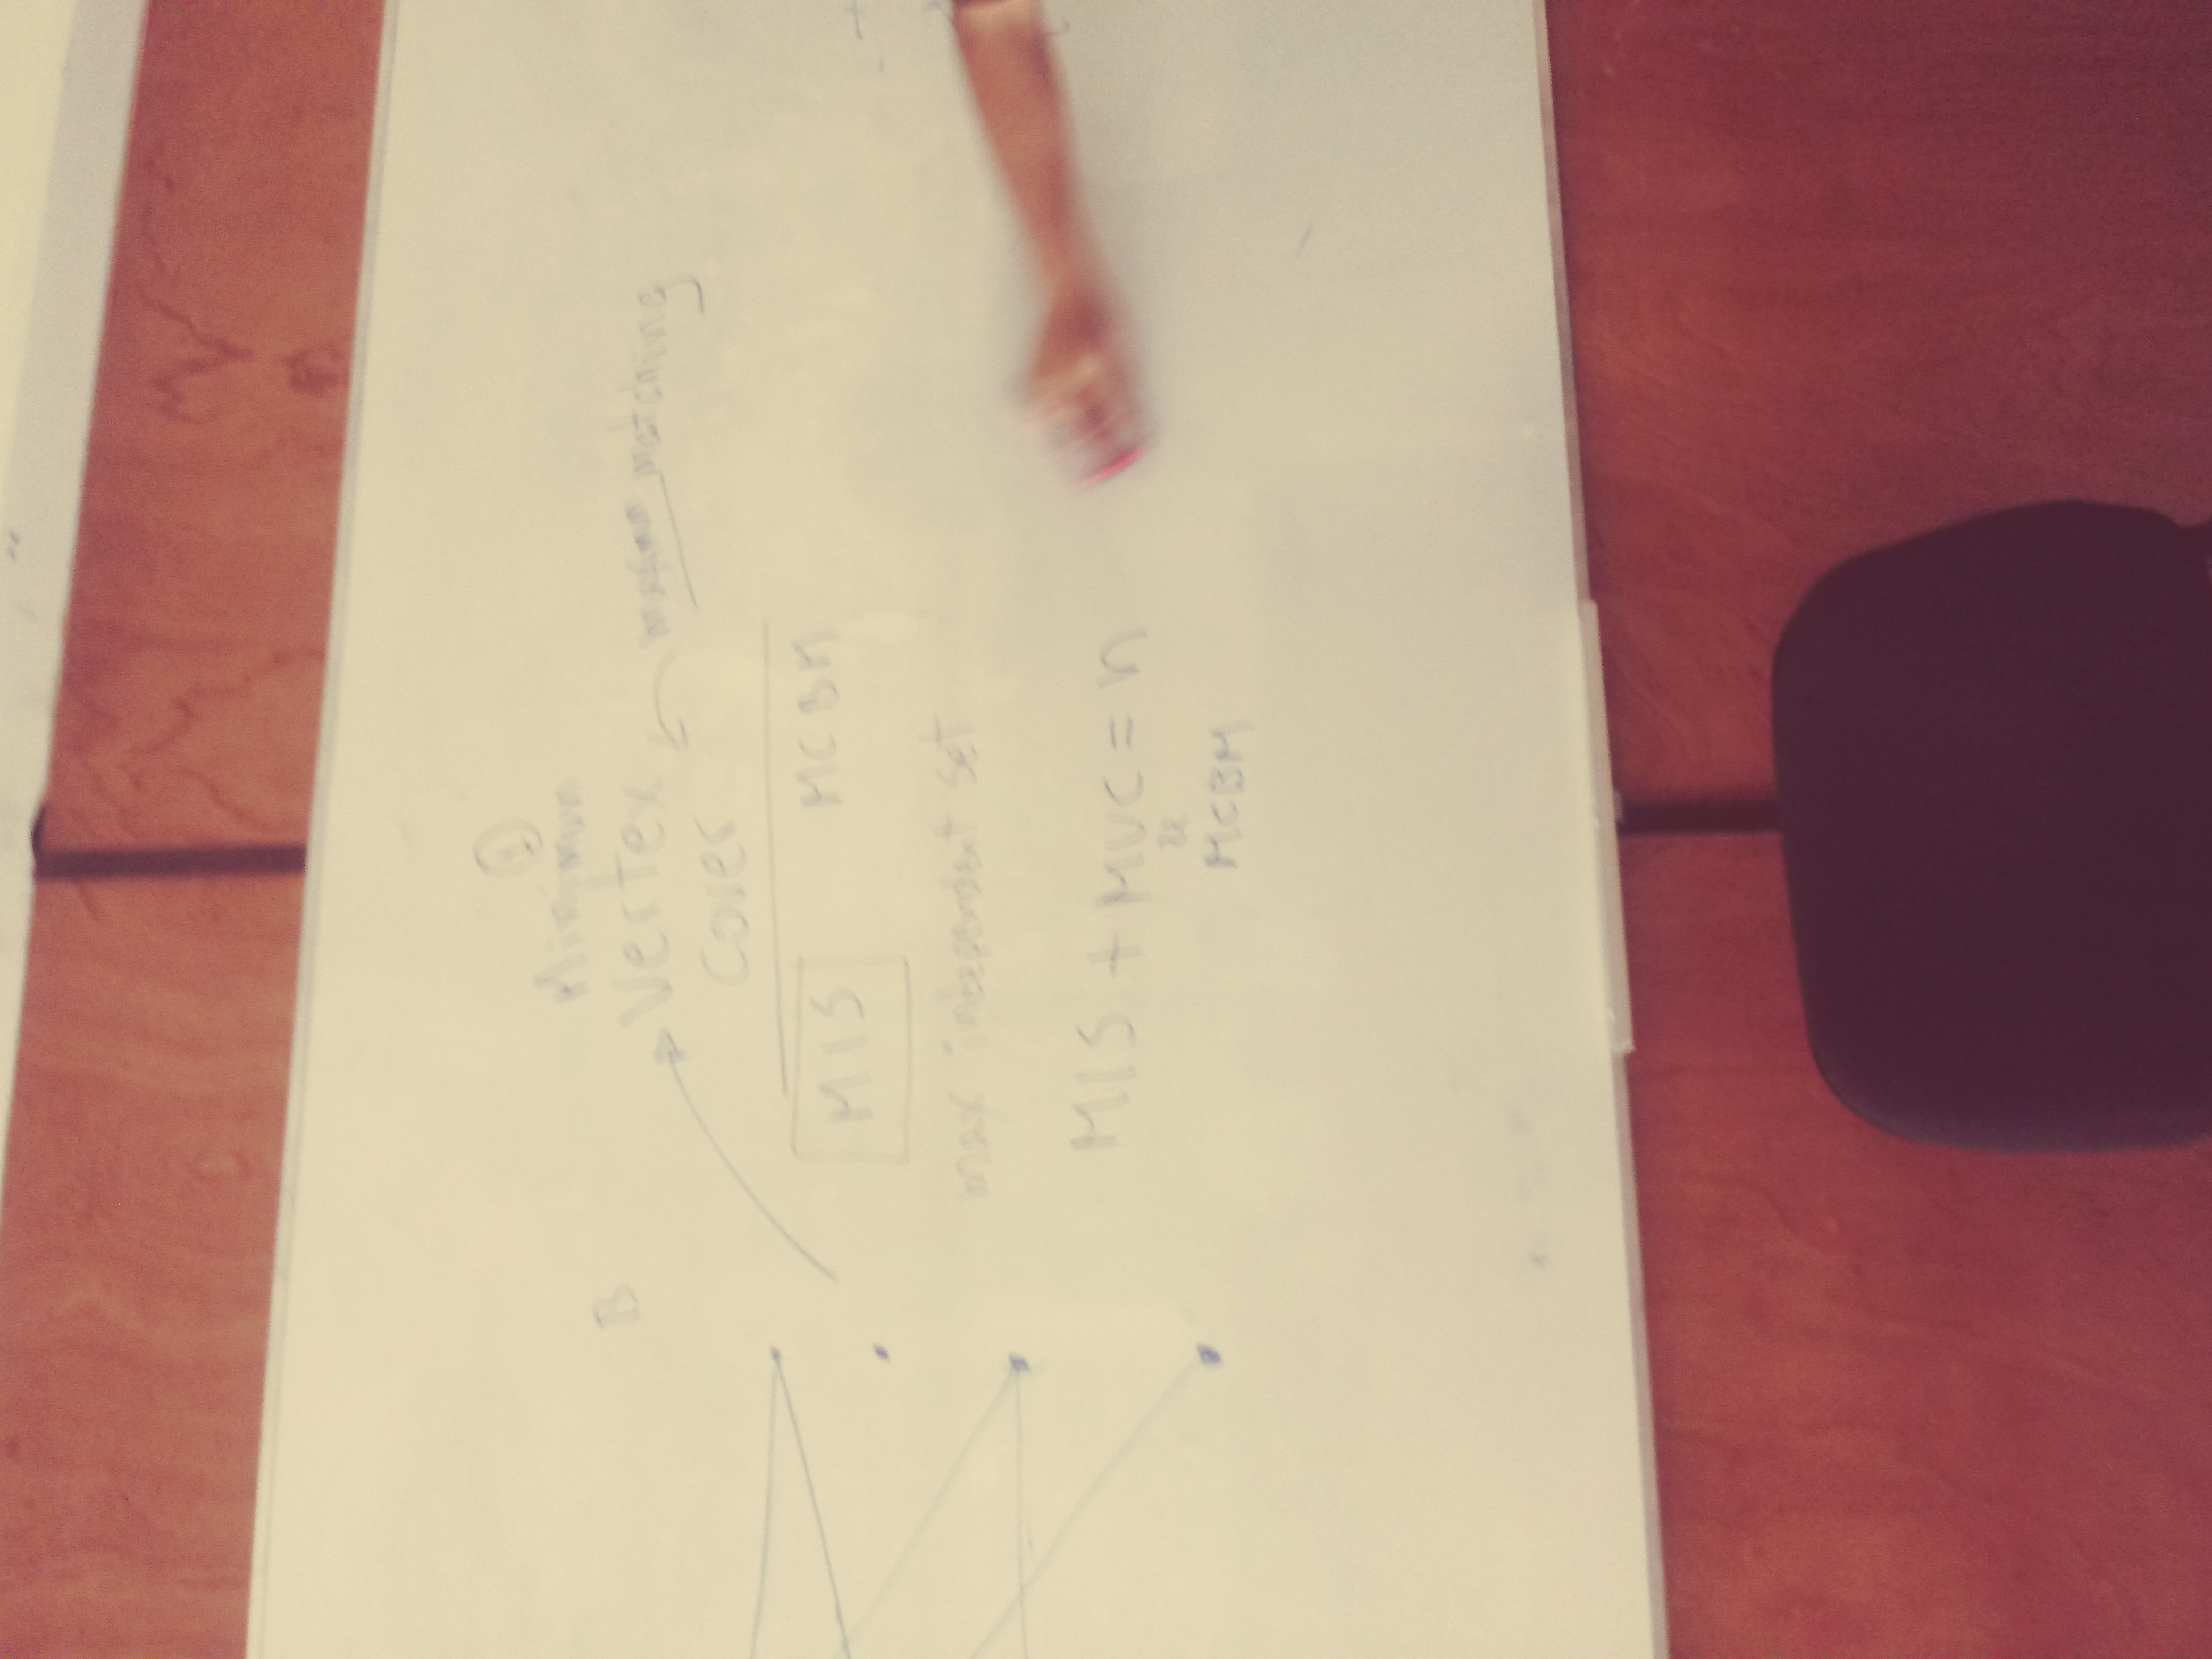 B
Minimun
Vertex
Cover
maximun matching
MIS
MCBM
max independent set
MIS + MVC = n
MCBM